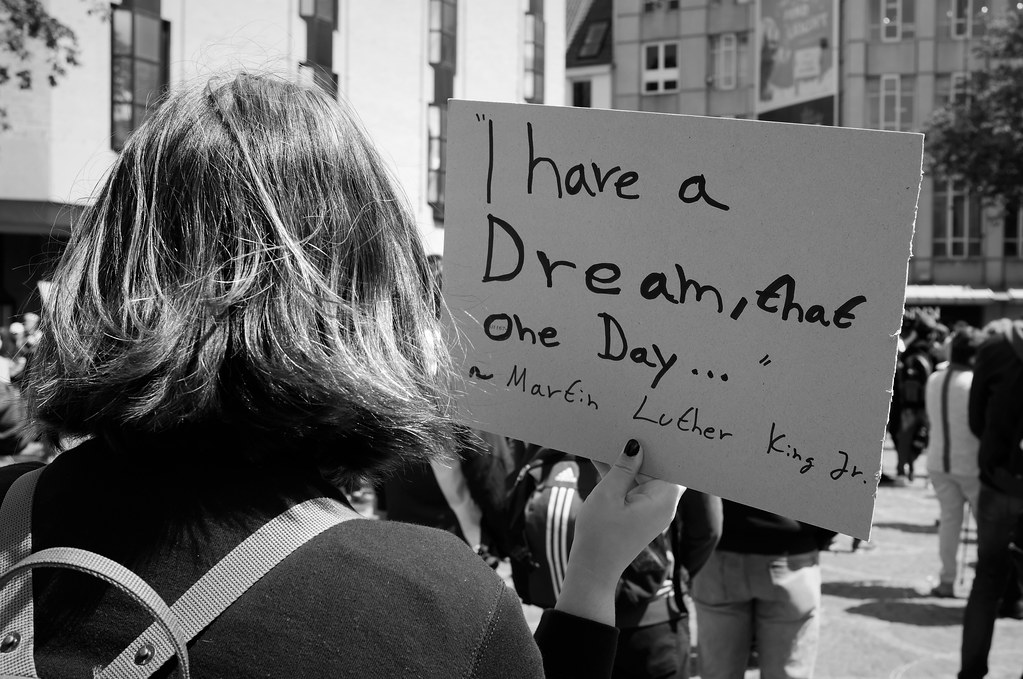 "I have a
Dream, that
One Day... "
~ Martin Luther King Jr.